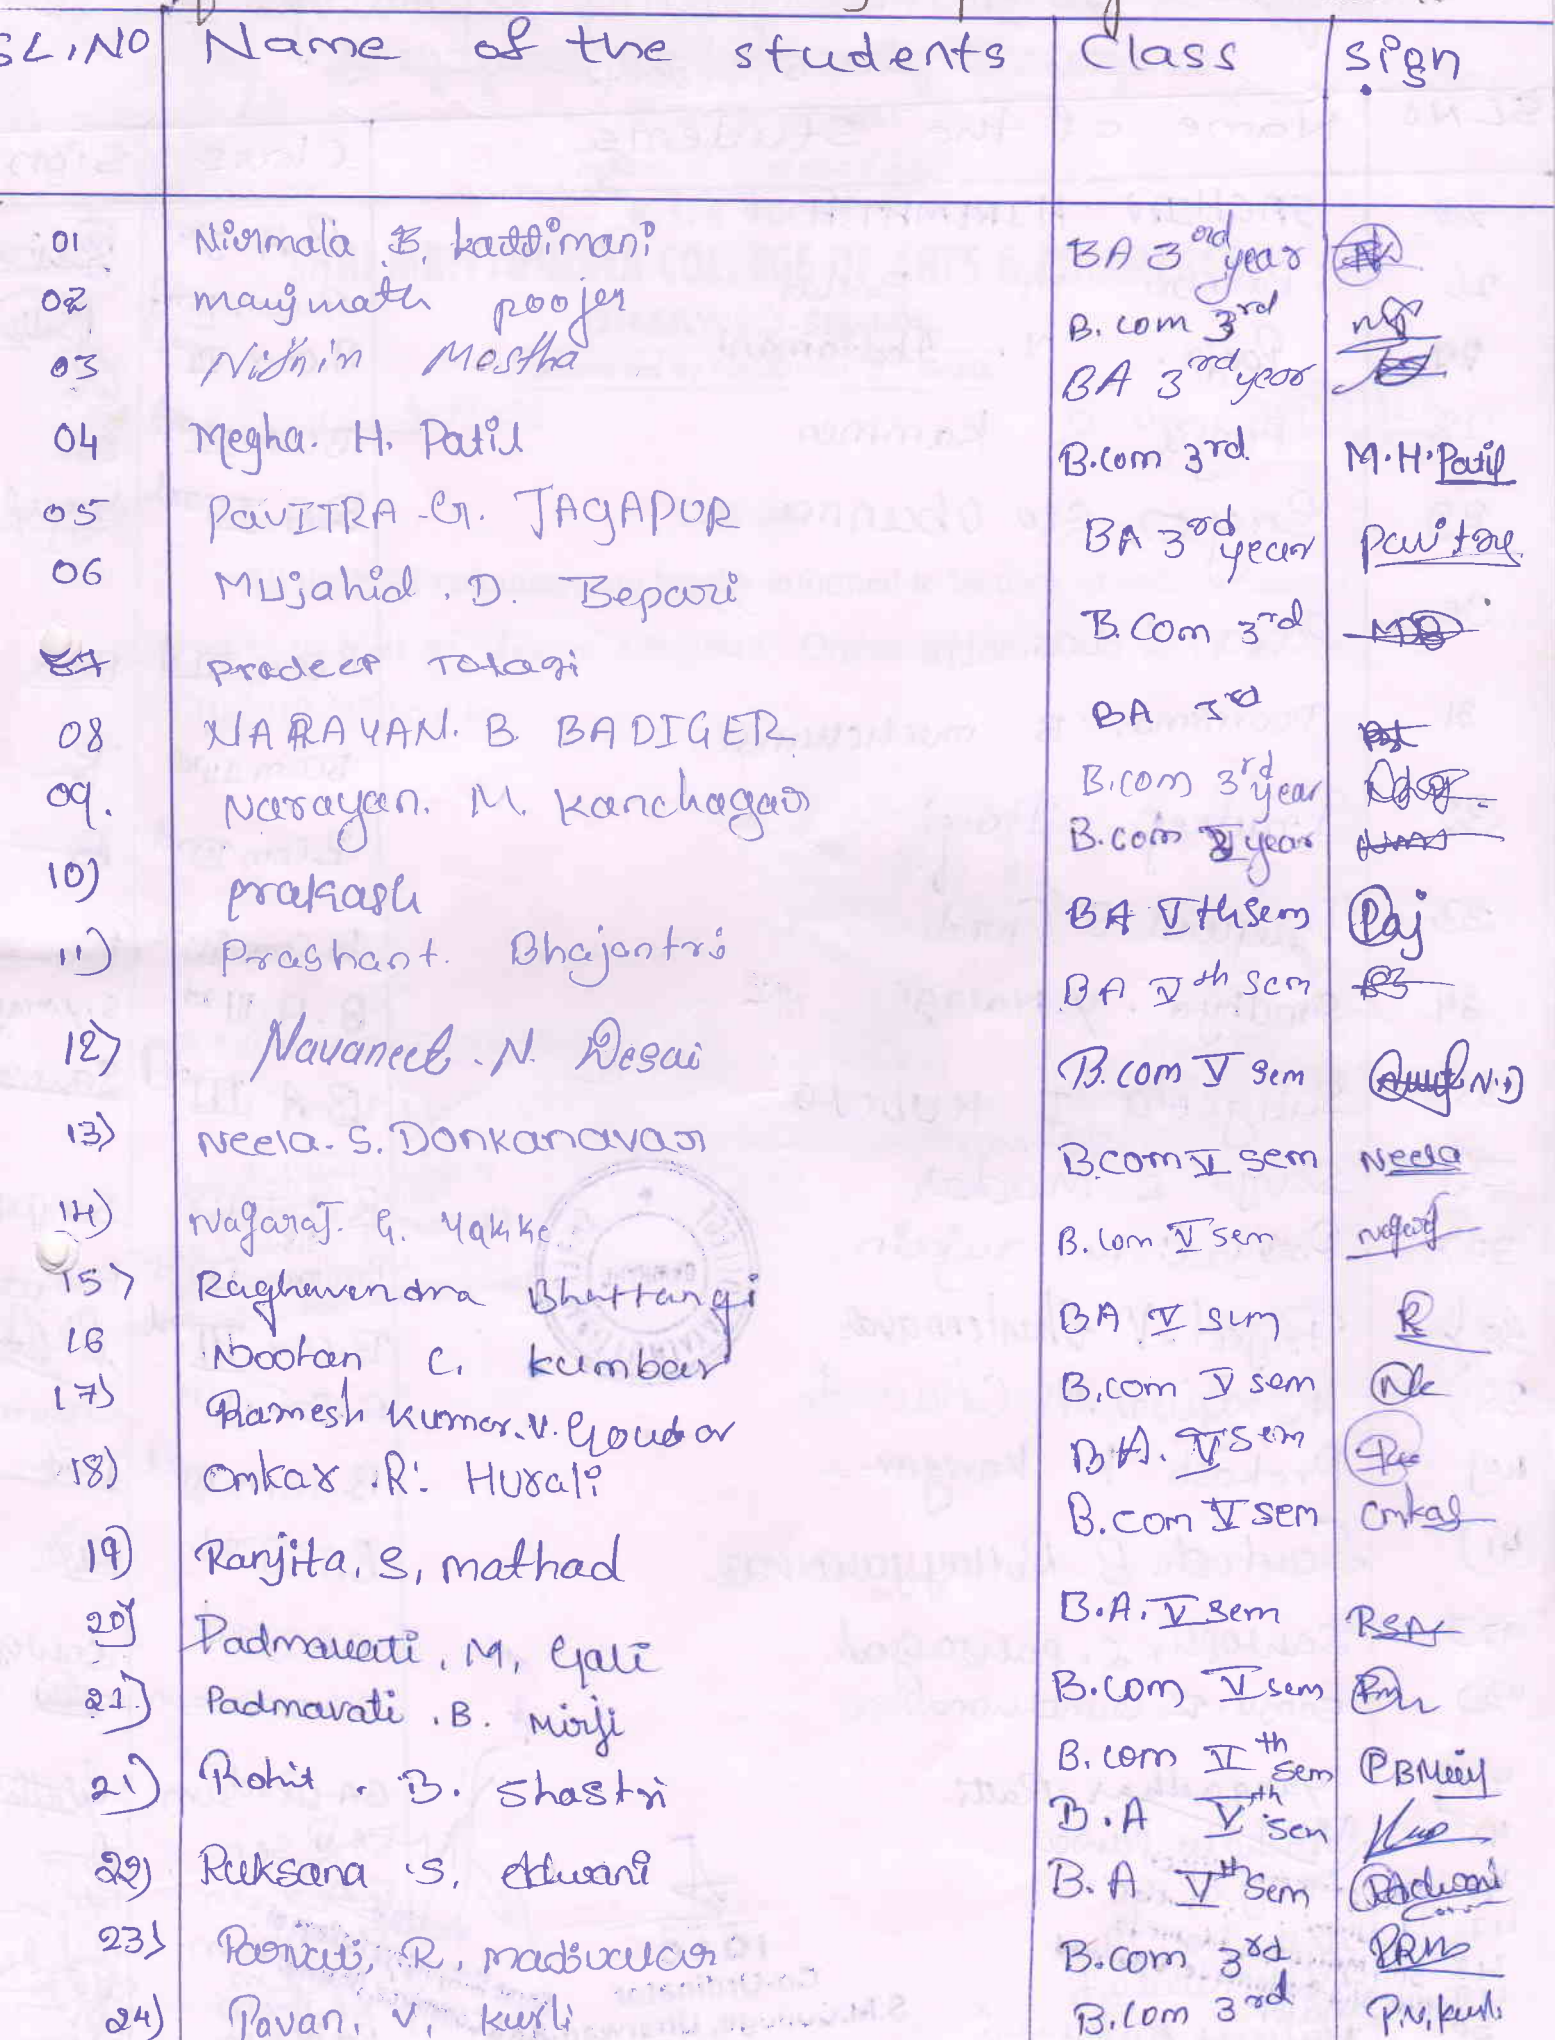 SL.NO Name of the students Class Sign
01 Nirmala .B. kaddimani BA 3rd year
02 manjunath poojer B. com 3rd
03 Nithin Mostha BA 3rd year
04 Megha. H. Patil B.com 3rd. M.H.Patil
05 PavITRA .G. JAGAPUR BA 3rd year Pavitra
06 Mujahid . D. Bepari B.Com 3rd MB
07 Pradeep Totagi BA 3rd
08 NARAYAN. B. BADIGER B.com 3rd year
09. Narayan. M. Kanchagar B.com year
10) prakash BA Vth sem Paj
11) Prashant. Bhajantri BA Vth sem
12) Navaneet . N. Desai B.com V sem N.D
13) Neela. S. Donkanavar B.com V sem Neela
14) Nagaraj. G. Yakke B. com V sem
15) Raghavendra Bhattangi BA V sem R
16 Nootan C. kumbar B.com V sem Nk
17) Ramesh kumar.V. Goudar BA. V sem
18) Omkar .R. Hurali B.com V sem Omkar
19) Ranjita. S, mathad B.A. V sem RSM
20) Padmavati . M, Gali B.com V sem Pm
21) Padmavati . B. Mirji B. com Vth sem PBMirji
21) Rohit . B. Shastri B.A Vth sem
22) Ruksana .S. Adwani B.A Vth sem RAdwani
23) Parvati, R, madivalar B.com 3rd PRM
24) Pavan. V. kurli B.com 3rd P.V. kurli